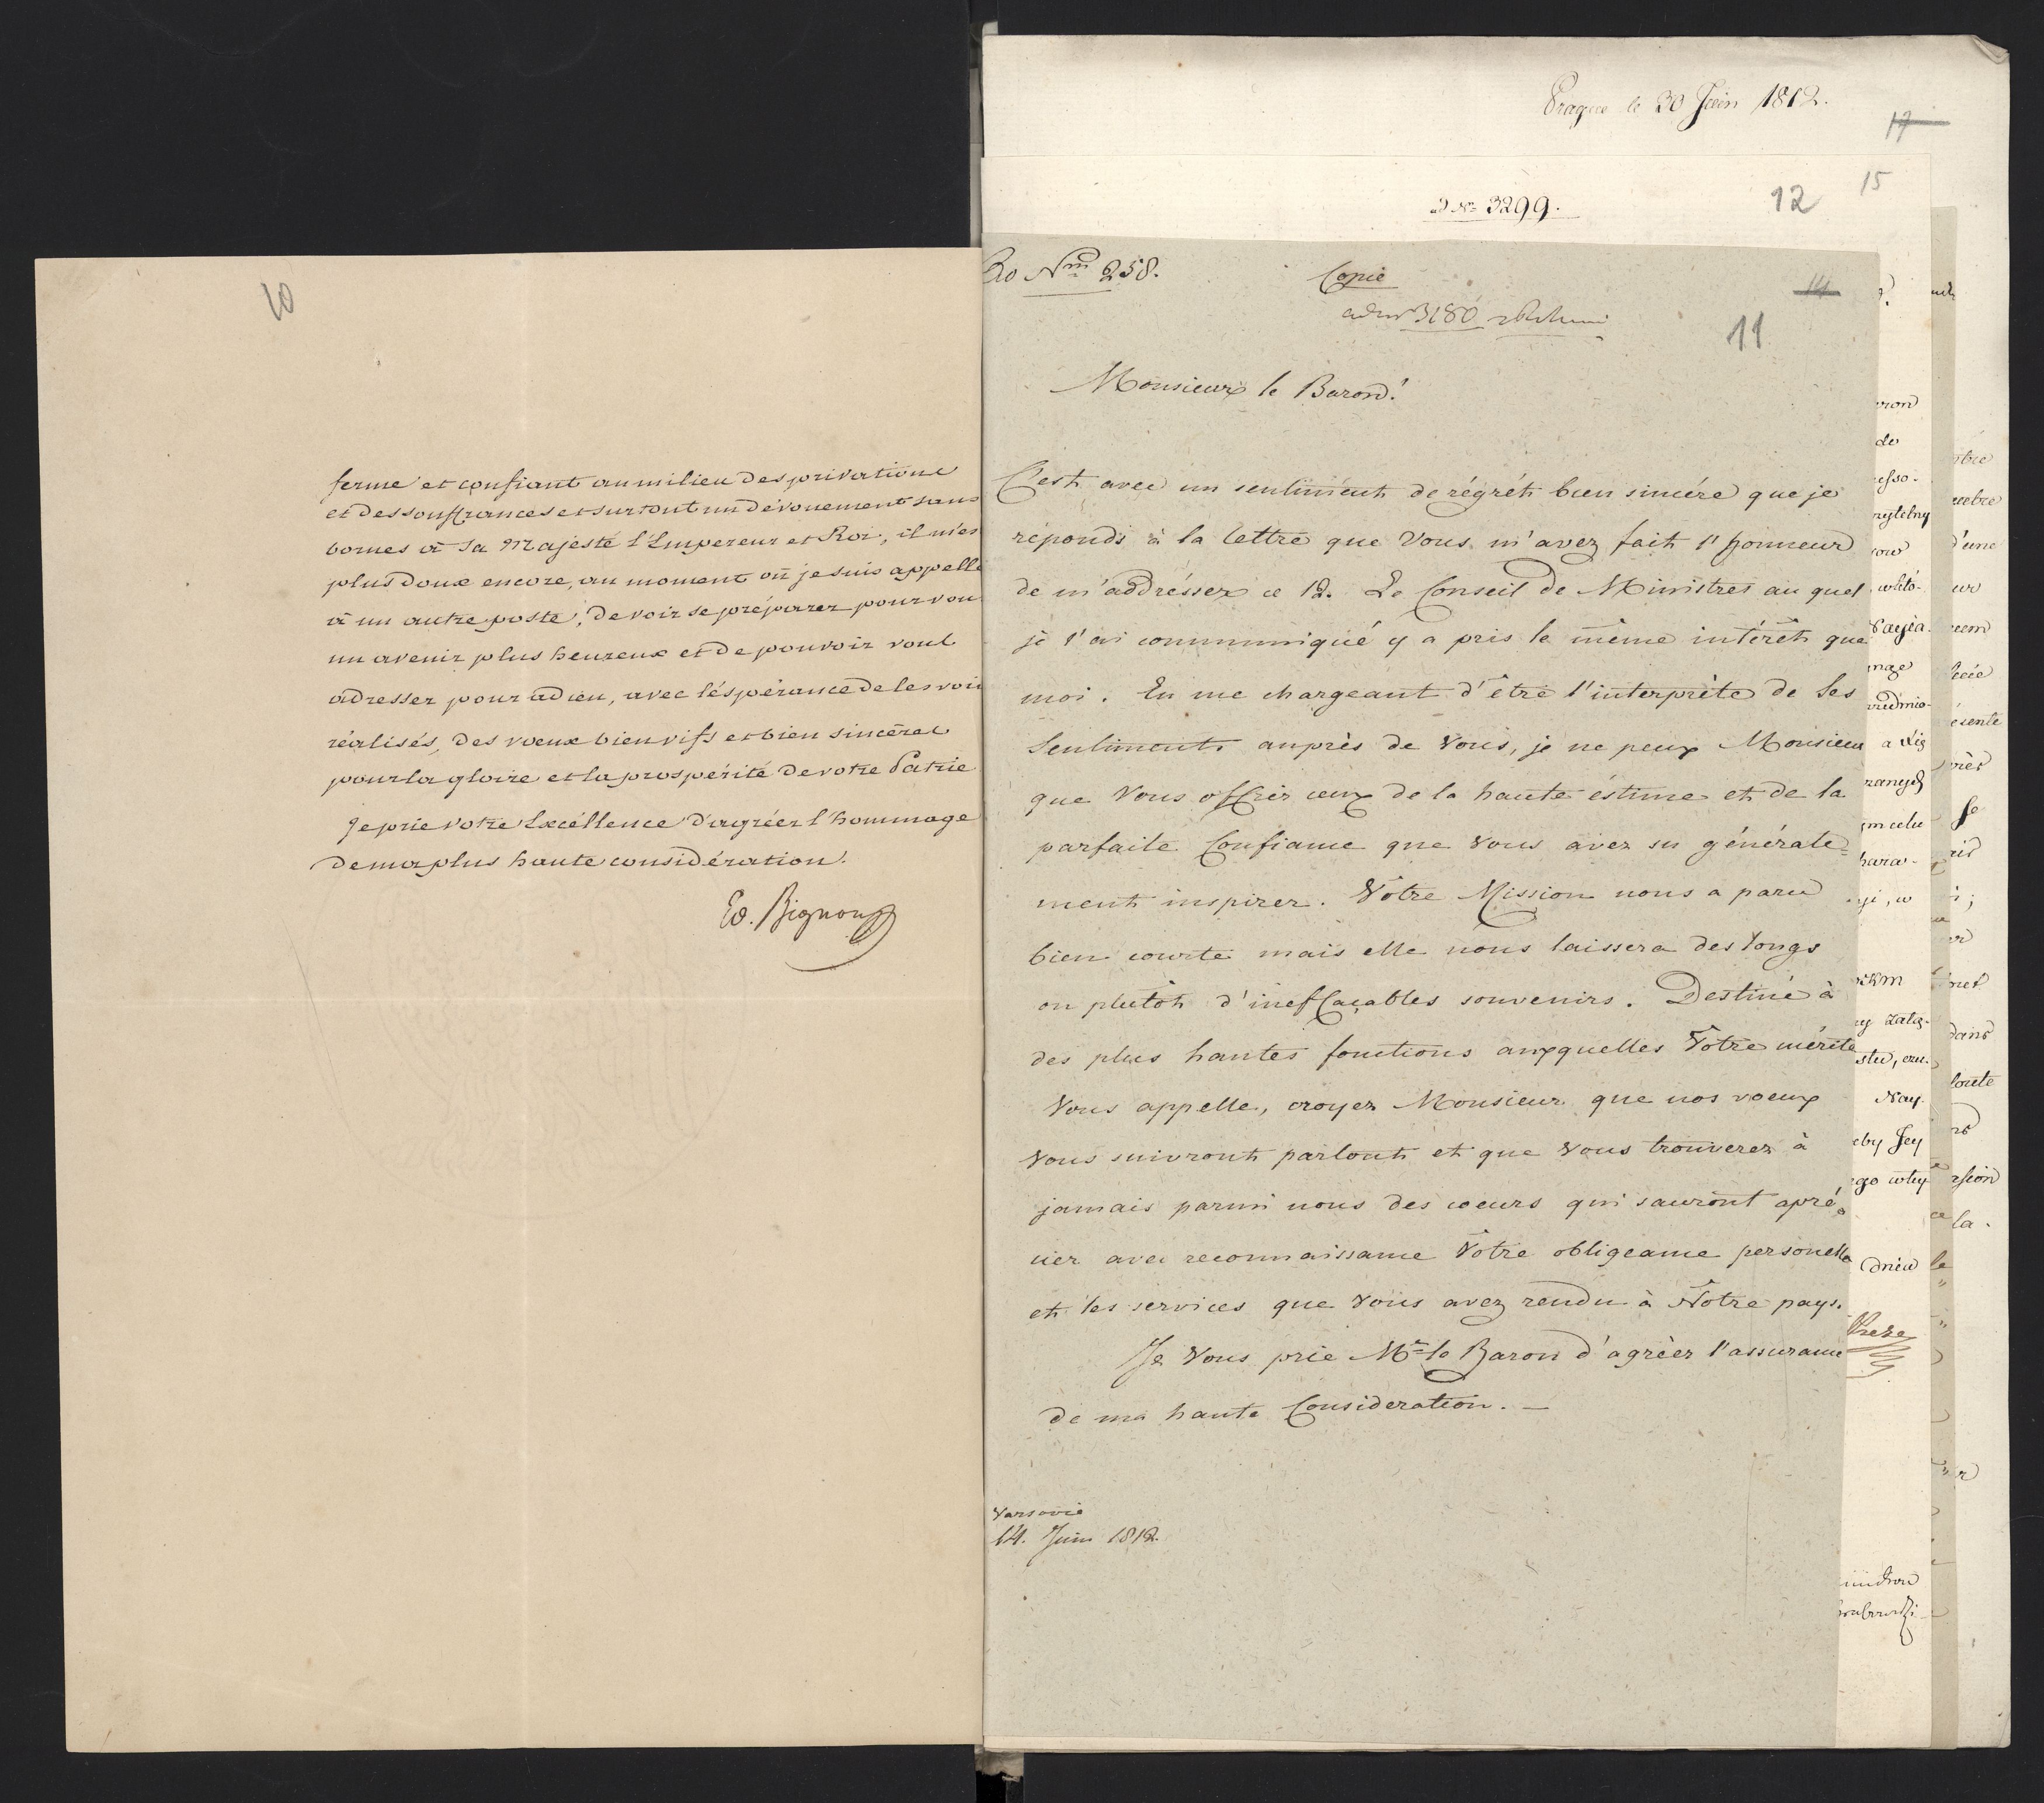 10
ferme et confiant au milieu des privations
et des souffrances et surtout un dévouement sans
bornes à Sa Majesté l'Empereur et Roi, il m'es
plus doux encore, au moment où je suis appellé
à un autre poste, de voir se préparer pour vou
un avenir plus heureux et de pouvoir vous
adresser pour adieu, avec l'éspérance de les voir
réalisés, des vœux bien vifs et bien sincères
pour la gloire et la prospérité de votre Patrie
Je prie votre Excéllence d'agréer l'hommage
de ma plus haute considération.
Ed. Bignon
Prague le 30 Juin 1812.
17
15
ad No 3299.
12
No 258.
Copie
14
ad No 3180
11
Monsieur le Baron!
C'est avec un sentiment de régrét bien sincére que je
réponds à la lettre que Vous m'avez fait l'honneur
de m'addrésser ce 12. Le Conseil de Ministres au quel
je l'ai communiqué y a pris le même intérêt que
moi. En me chargeant d'être l'interprète de Ses
Sentiments auprès de Vous, je ne peux Monsieur
que Vous offrir ceux de la haute éstime et de la
parfaite Confiance que Vous avez su générale=
ment inspirer. Votre Mission nous a paru
bien courte mais elle nous laissera des longs
ou plutôt d'ineffaçables souvenirs. Destiné à
des plus hautes fonctions auxquelles Votre mérite
Vous appelle, croyez Monsieur que nos voeux
Vous suivront partout et que Vous trouverez à
jamais parmi nous des coeurs qui sauront apré=
cier avec reconnaissance Votre obligeance personelle
et les services que Vous avez rendu à Notre pays.
Je Vous prie Mr le Baron d'agrèer l'assurance
de ma haute Consideration. —
Varsovie
14. Juin 1812.